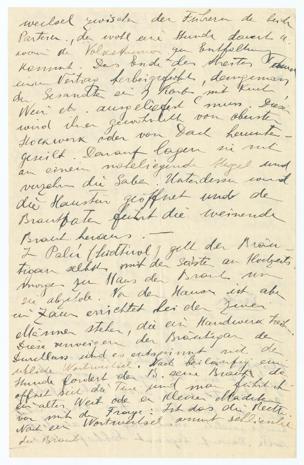 wechsel zwischen den Führern der beiden
Parteien, der wohl eine Stunde dauert u.
worin der Volkshumor zur Entfaltung
kommt. Das Ende des Streites
einen Vertrag herbeigeführt, demgemäss
die Gesandten ein Korb mit
Wein etc. ausgeliefert muss. Dieser
wird ihnen gewöhnlich vom obersten
Stockwerk oder vom Dach herunter-
gereicht. Darauf lagern sie sich
an einem naheliegenden Hügel und
verzehren die Gaben. Unterdessen wird
die Haustür geöffnet und der
Brautvater führt die weinende
Braut heraus. —
In Palù (Südtirol) geht der Bräu-
tigam selbst mit den Gästen am Hochzeits-
morgen zum Haus der Braut um
sie abzuholen. Vor dem Hause ist aber
ein Zaun errichtet bei dem zwei
Männer stehen, die ein Handwerk
Diese verweigern dem Bräutigam den
Durchlass und es entspinnt sich der
übliche Wortwechsel. Nach beiläufig einer
Stunde fordert der B. seine Braut, da
öffnet sich die Türe und man führt ihm
ein altes Weib oder ein kleines Mädchen
vor mit der Frage: Ist das die Rechte?
Nach einem Wortwechsel kommt schliesslich
die Braut